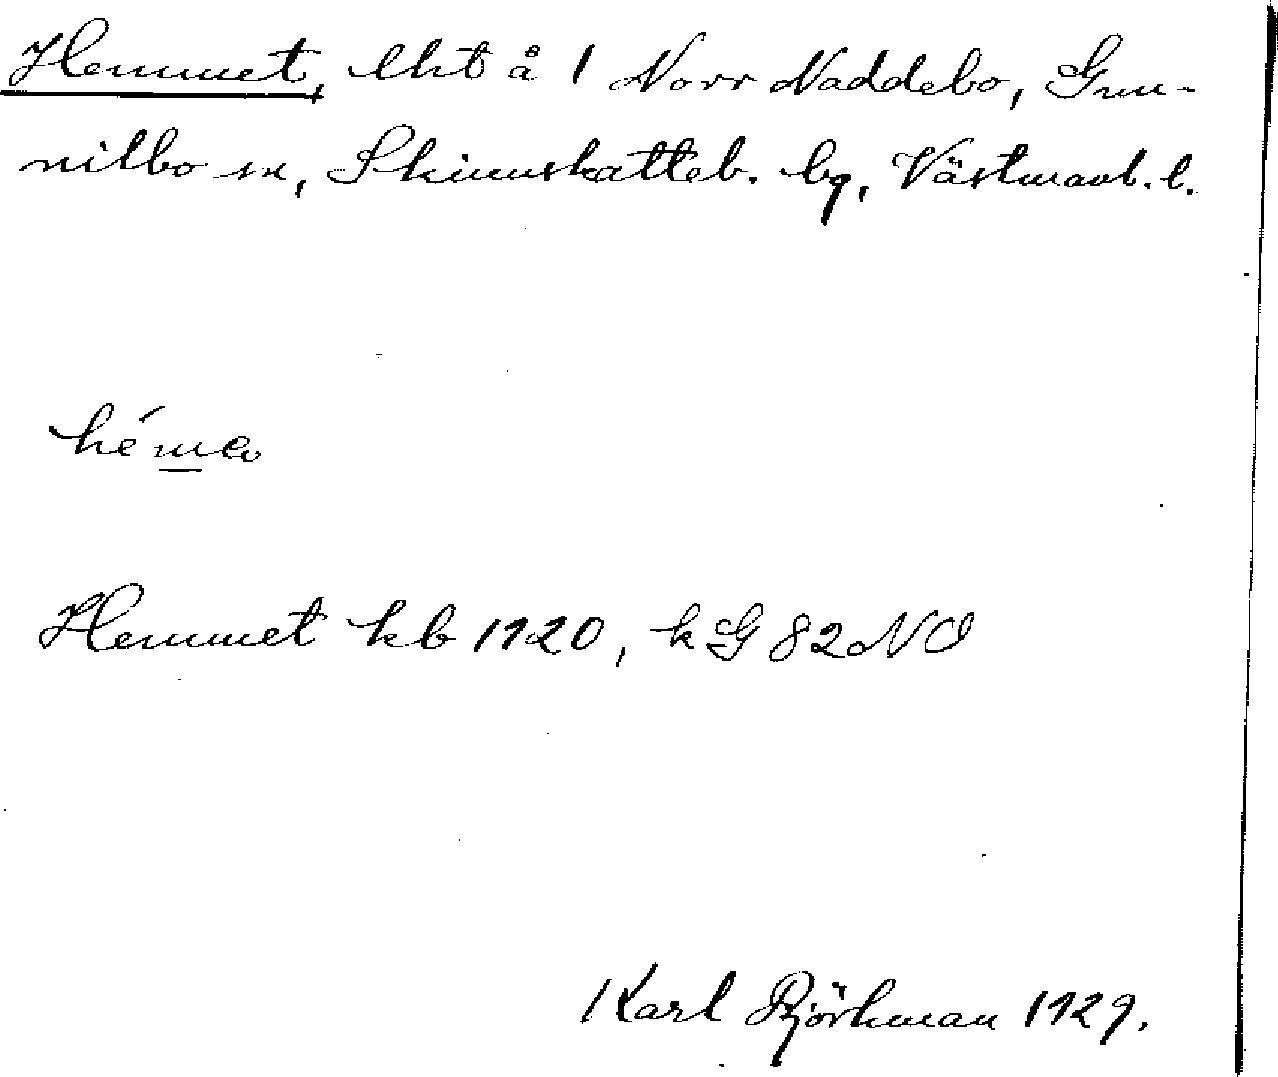 Hemmet, lht å 1 Norr Naddebo, Gun-
nilbo sn, Skinnskatteb. bg, Västmanl. l.
hémɐ
Hemmet kb 1920, k G 82 NO
Karl Björkman 1929.